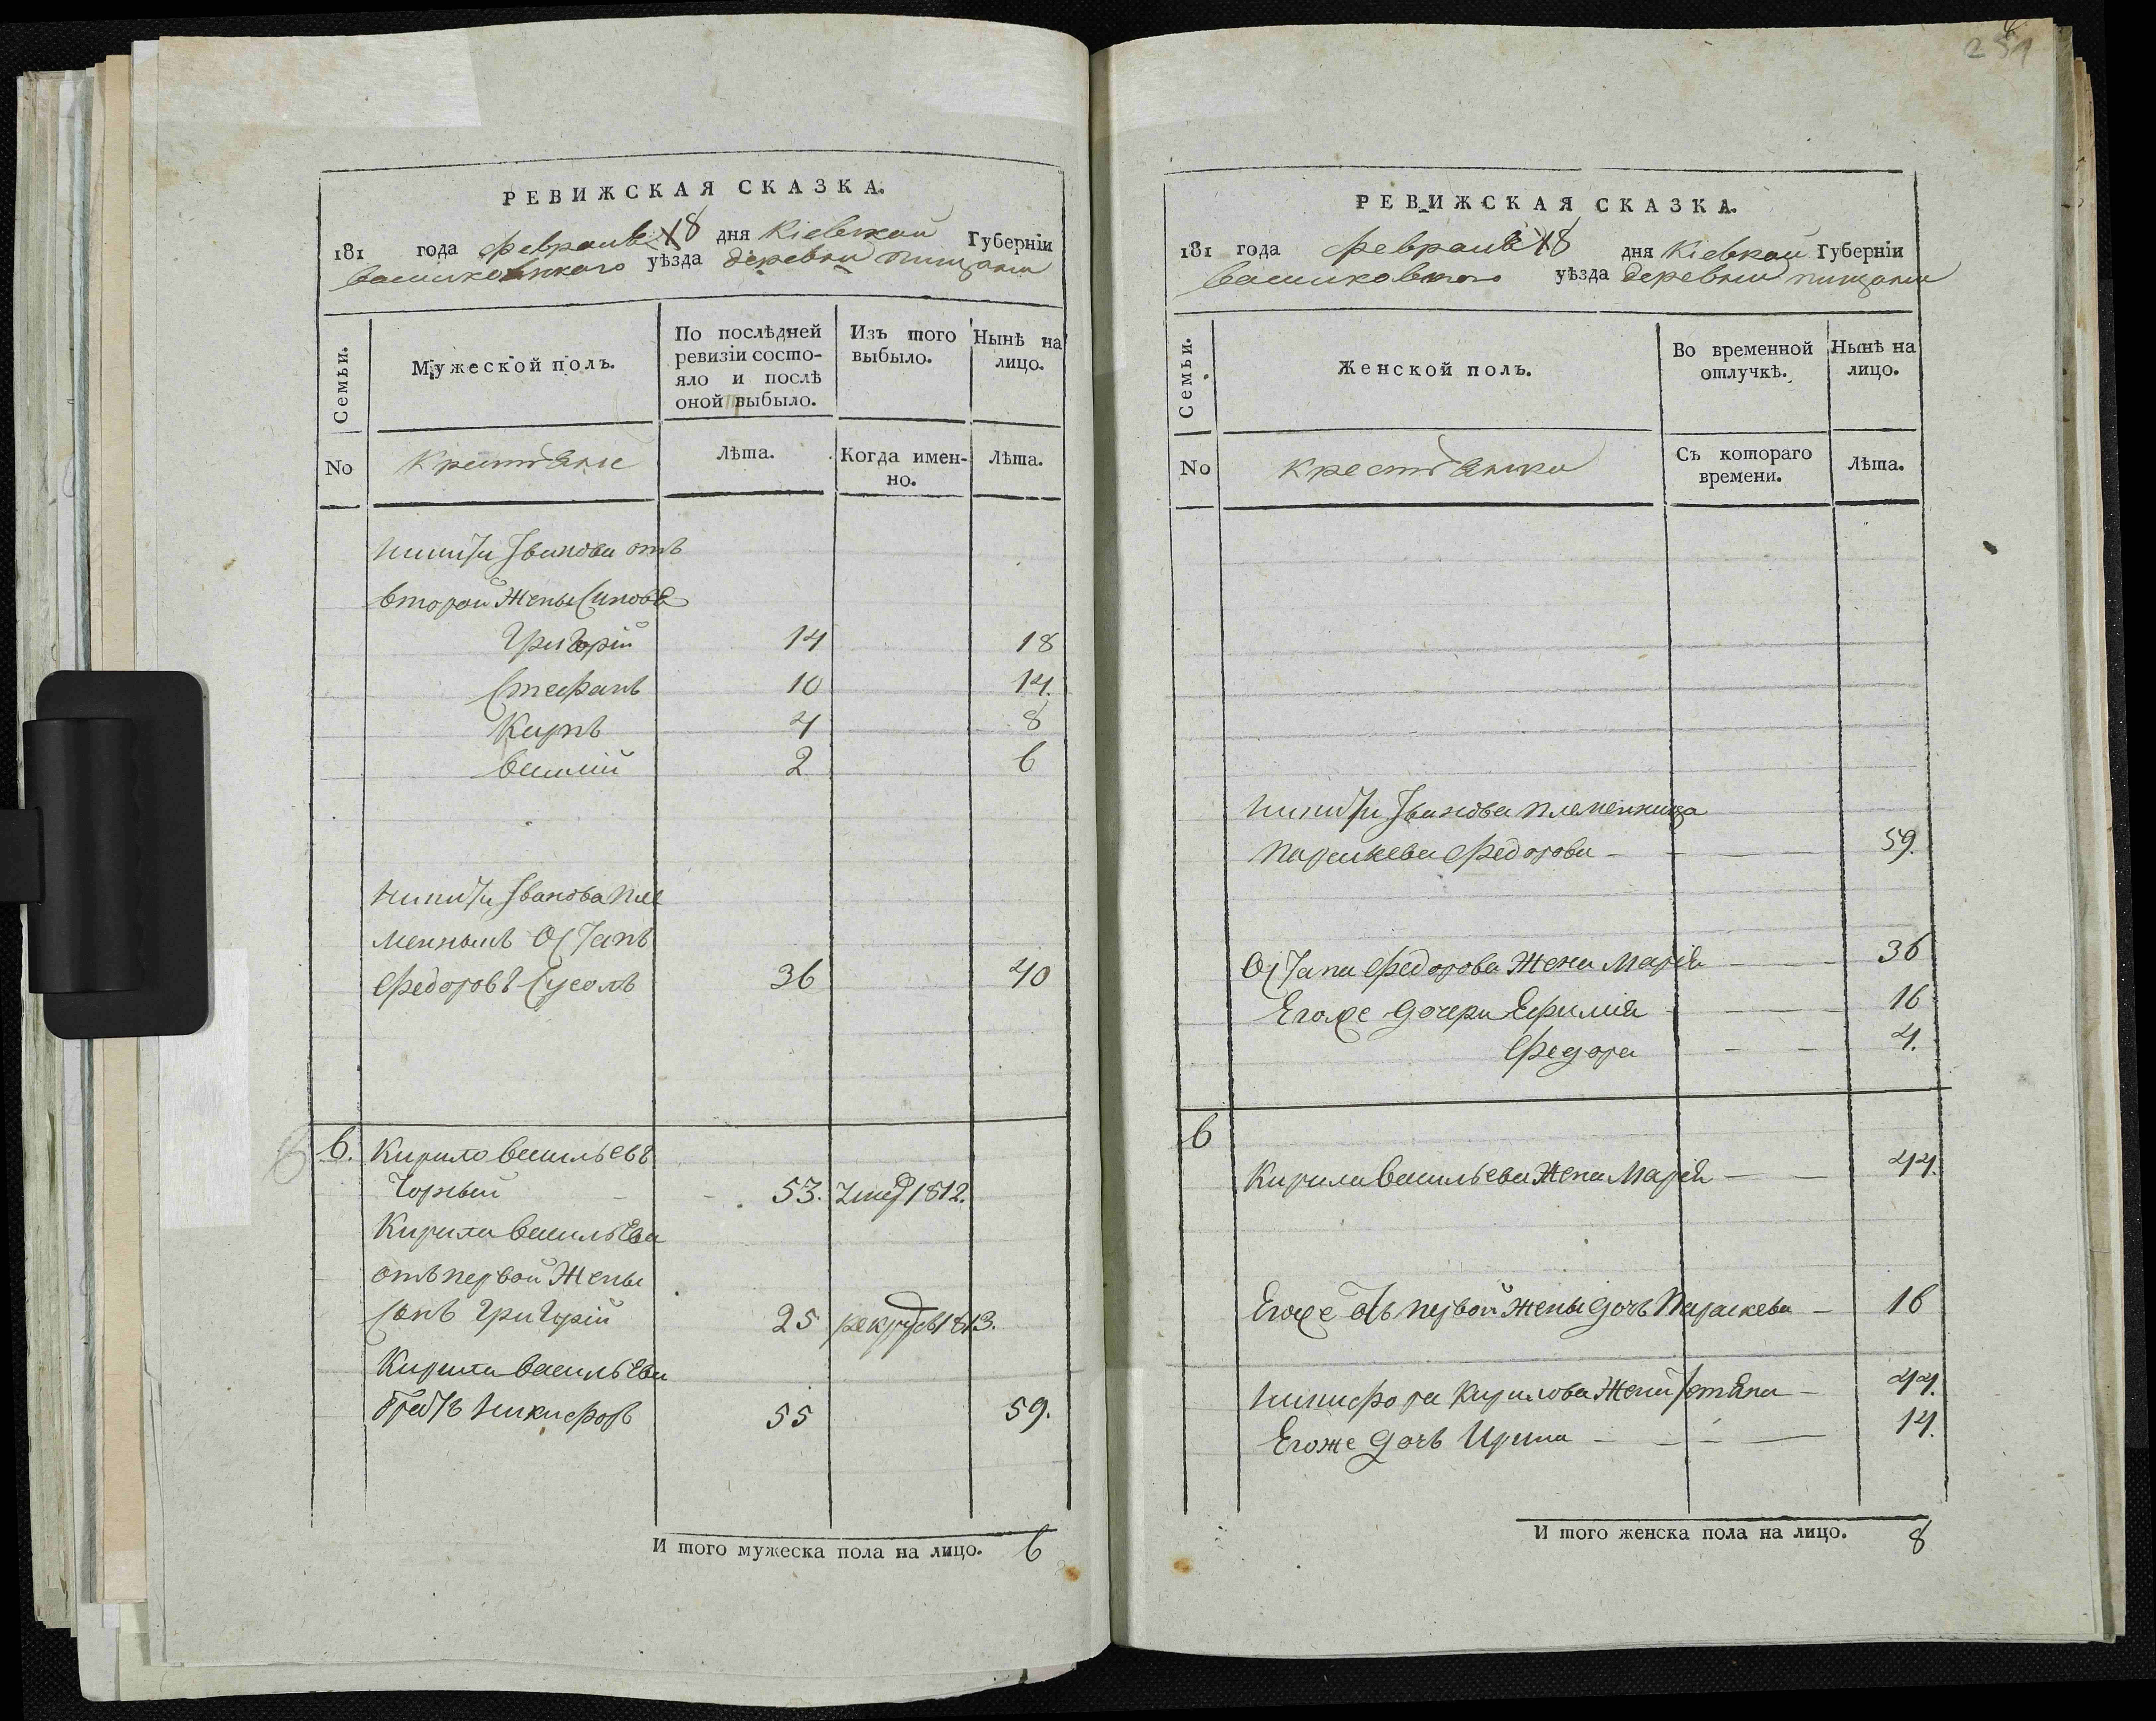 251
РЕВИЖСКАЯ СКАЗКА.
181 года февраля 18 дня Кіевской Губерніи
Васильковского уѣзда деревни пищани
Семьи.
Мужеской полъ.
По послѣдней ревизіи состо-
яло и послѣ
оной выбыло.
Изъ того
выбыло.
Нынѣ на
лицо.
No
Крестьяне
Лѣта.
Когда имен-
но.
Лѣта.
Никиты Иванова отъ
второй Жены Синовя
Григорій 14 18
Стефанъ 10 14.
Карпъ 4 8
василій 2 6
Никиты Иванова пле
менникъ Остапъ
Федоровъ Сусолъ 36 40
6. Кирило васильевъ
Чорный 53. умер 1812.
Кирила васильева
отъ первой Жены
Сынъ Григорій 25 рекрут 1813.
Кирила васильева
братъ Никифоръ 55 59.
И того мужеска пола на лицо. 6
РЕВИЖСКАЯ СКАЗКА.
181 года февраля 18 дня Кіевской Губерніи
Васильковского уѣзда деревни пищани
Семьи.
Женской полъ.
Во временной
отлучкѣ.
Нынѣ на
лицо.
No
крестьянки
Съ котораго
времени.
Лѣта.
Никиты Иванова племенница
параскева федорова 59.
Остапа федорова Жена Марія 36
Егоже дочери Ефимія 16
Федора 4.
6
Кирила васильева Жена Марія 44.
Егоже отъ первой жены дочь Параскева 16
Никифора Кирилова Жена Татяна 44.
Егоже дочь Ирина 14.
И того женска пола на лицо. 8